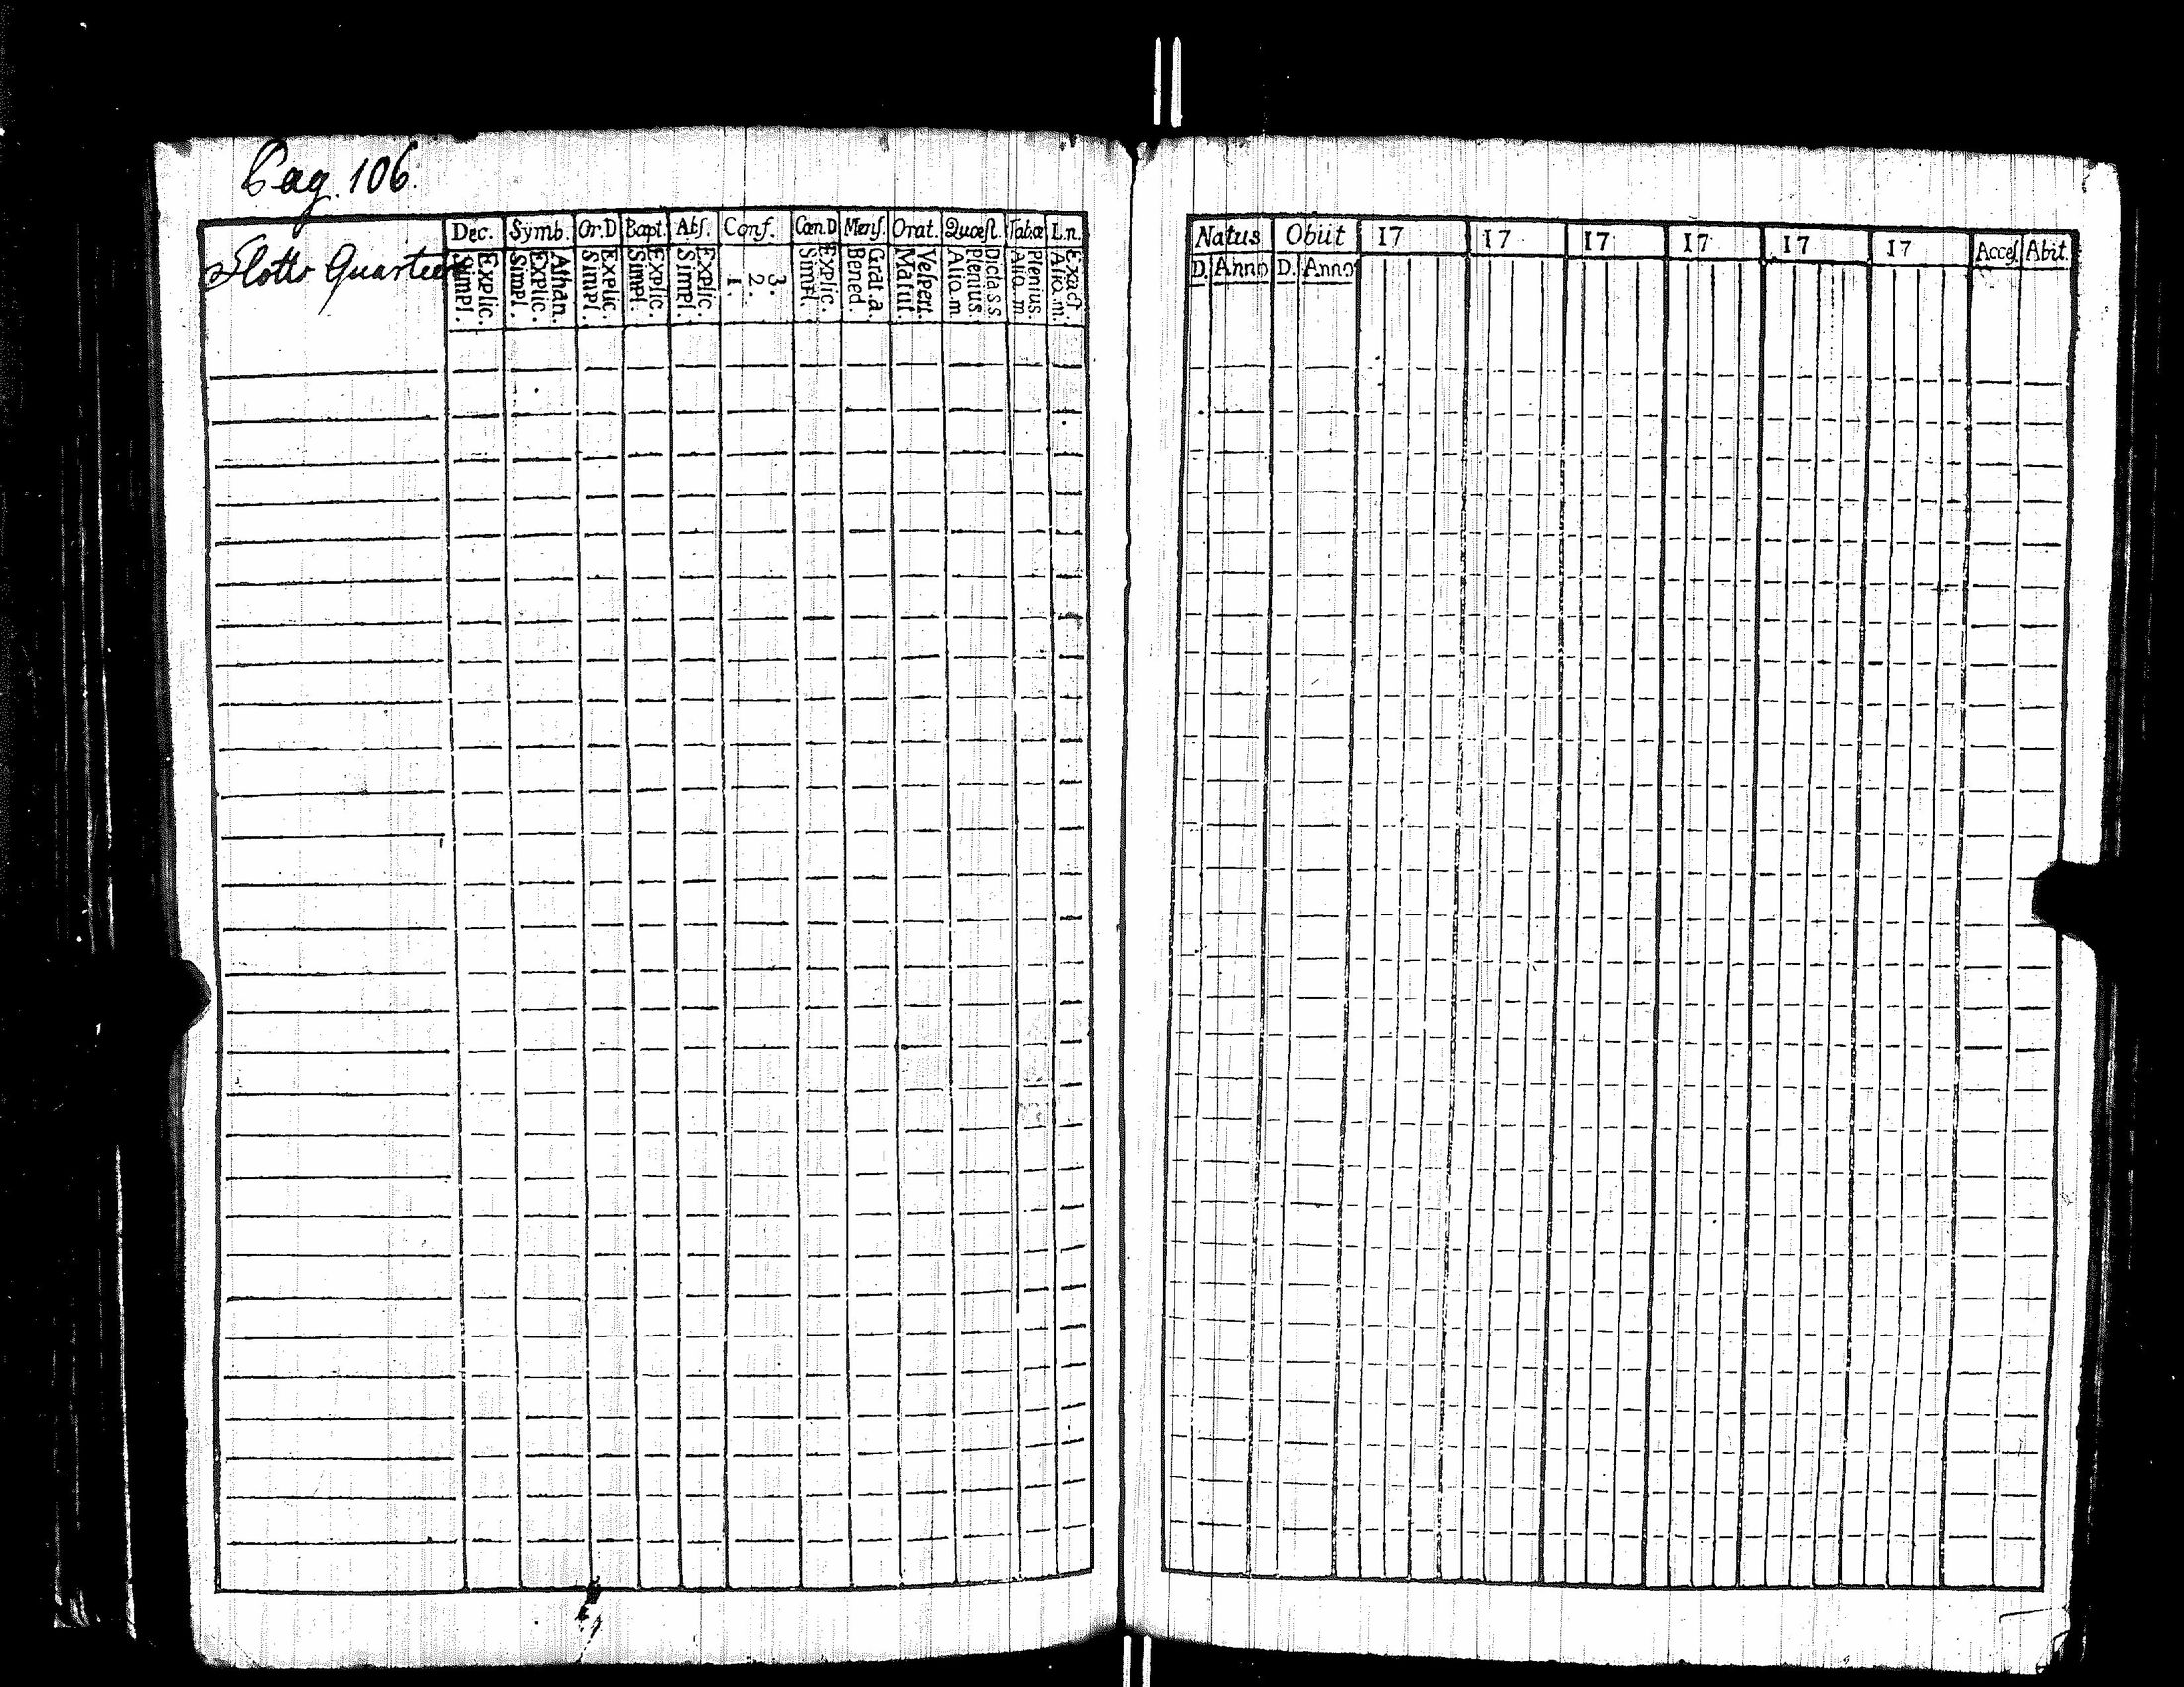 Pag. 106.
Slotts Quarteer
Dec. Symb. Or.D Bapt. Abſ. Conf. Cœn.D Menſ. Orat. Quæſt. Tabæ L.n.
Simpl. Explic. Simpl. Explic. Athan. Simpl. Explic. Simpl. Explic. Simpl. Explic. 1. 2. 3. Simpl. Explic. Bened. Grat.a. Matut. Veſpert. Aliq.m Plenius. Dicta s.s. Aliq.m Plenius. Aliq.m. Exact.
Natus Obiit 17 17 17 17 17 17 Acceſ. Abit.
D. Anno D. Anno